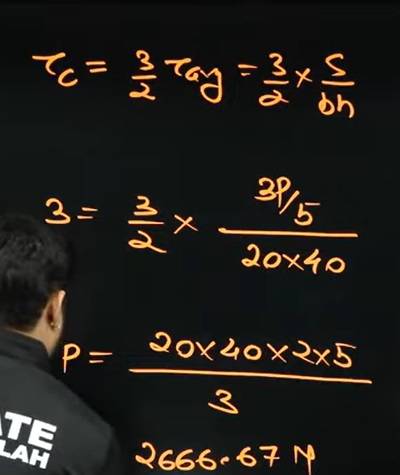 τc = 3/2 τavg = 3/2 × S/bh
3 = 3/2 × (3P/5)/(20×40)
P = (20×40×2×5)/3
2666.67 N
ATE
LAH